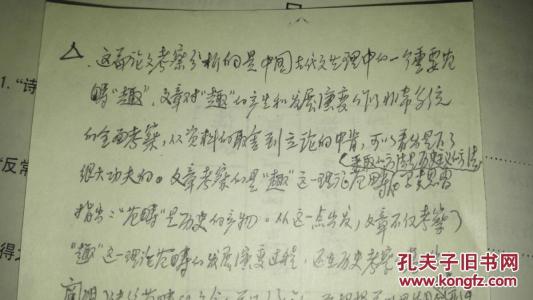 △. 这篇论文考察分析的是中国古代文艺理论中的一个重要范
畴"趣"，文章对"趣"的产生和发展演变作了非常系统
的全面考察，从资料的取舍到立论的中肯，可以看出是下了
很大功夫的。文章考察的是"趣"这一理论范畴，
采取的方法是历史主义的方法
指出："范畴"是历史的产物。从这一点出发，文章不仅考察了
"趣"这一理论范畴的发展演变过程，还在历史考察
1. "诗
"反常
得之
孔夫子旧书网
KONGFZ.COM